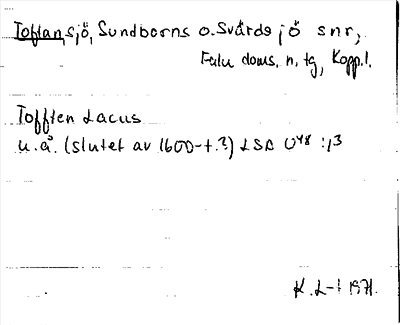 Toftan, sjö, Sundborns o. Svärdsjö snr,
Falu doms. n. tg, Kopp. l.
Tofften Lacus
u.å. (slutet av 1600-t.?) LSA U48:13
K. L-t 1971.